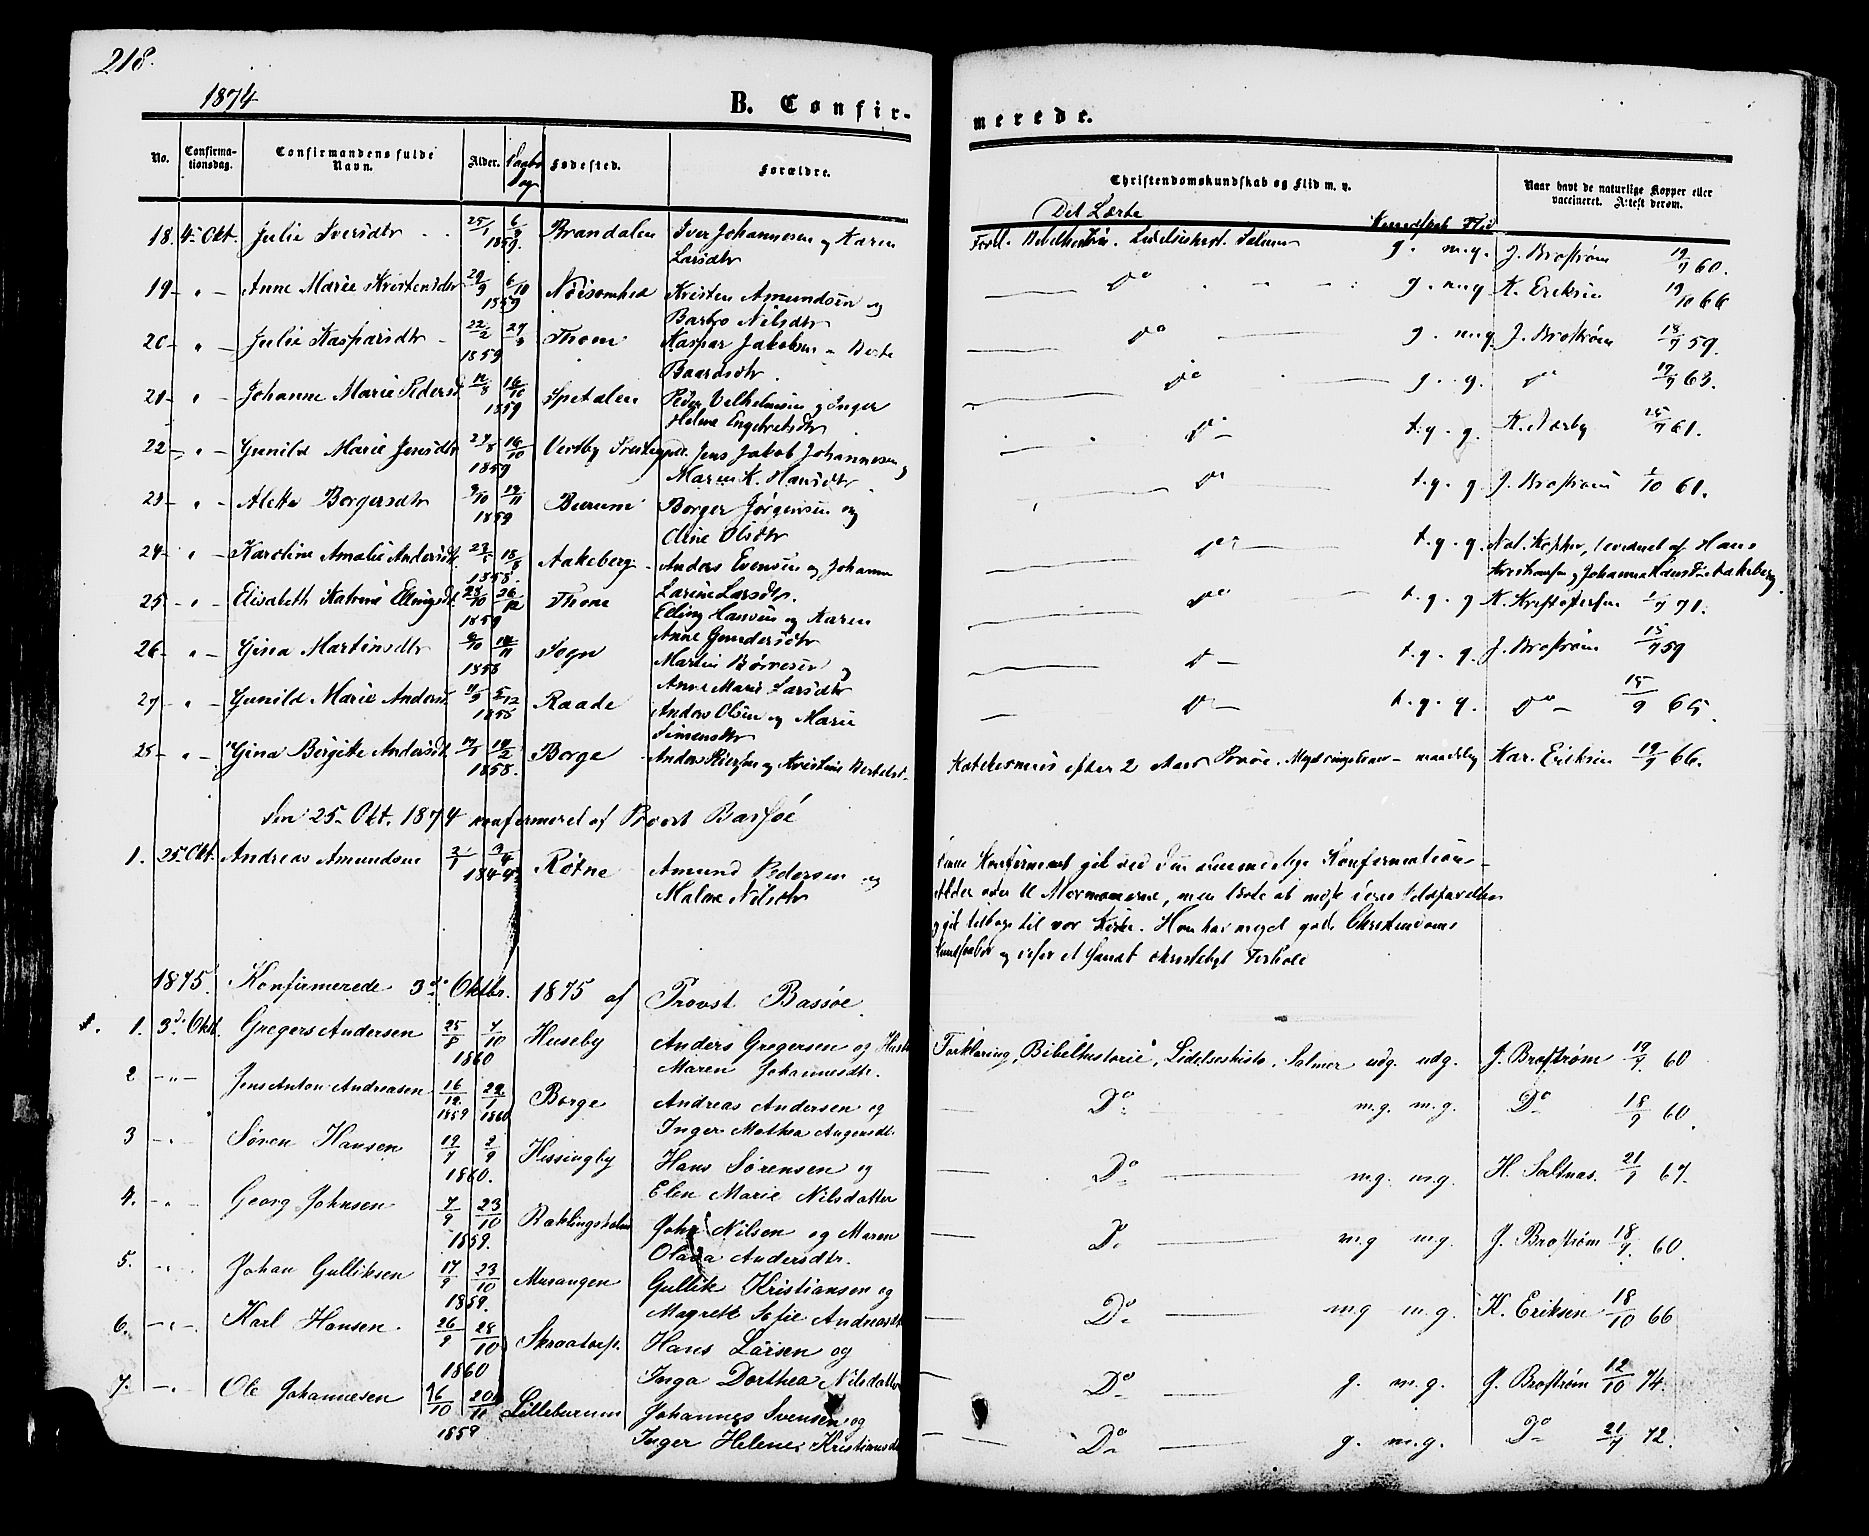 218.
1874
B. Confir-
merede.
No. Confirmationsdag. Confirmandens fulde Navn. Alder. Daabs Dag Fødested. Forældre.
Christendomskundskab og Flid m. v. Naar havt de naturlige Kopper eller vaccineret. Attest derom.
Det Lærte Kundskab Flid
18. 4de Okt. Julie Iversdtr 25/1 6/3 1859. Brandalen Iver Johannesen og Karen Larsdtr Forkl. Bibelhistorie. Lidelseshist. Salmer g. m.g. J. Brostrøm 19/9 60.
19 - " - Anne Marie Kristensdtr 29/9 6/10 1859 Kristen Amundsen og Barbro Nilsdtr Do g. mg K. Eriksen 19/10 66
20 - " - Julie Kaspersdtr 22/2 1859 Thom Kaspar Jakobsen - Berte Baardsdtr Do g. mg. J. Brostrøm 18/9 59.
21 - " - Johanne Marie Pedersd 12/8 16/10 1859 Spetalen Peder Vilhelmsen og Inger Helene Engebretsdtr Do g. g. Do 63.
22 - " - Gunild Marie Jensdtr 16/10 1859 Jens Jakob Johannesen og Maren K. Hansdtr Do t.g. g. K. Nærby 61.
23 - " - Alette Borgersdtr 9/10 19/11 1859 Burum Borger Jørgensen og Oline Olsdtr Do t.g. g J. Brostrøm 1/10 61.
24 - " - Karoline Amalie Andersdt. 18/8 1858. Aakeberg Anders Evensen og Johanne Larine Larsdtr. Do t.g. g. Nat. Kopper, bevidnet af Hans Kristiansen og Johannes Aakeberg
25 - " - Elisabeth Katrine Ellingsdt. 23/10 26/12 1859 Thom Elling Hansen og Karen Anne Gundersdtr Do t.g. g K. Kristofersen 71.
26 - " - Gina Martinsdtr 6/10 14/11 1858 Sogn Martin Børresen og Anne Marie Larsdtr Do t.g. g. J. Brostrøm 15/9 59
27 - " - Gunild Marie Andersd. 5/12 1858 Raade Anders Olsen og Marie Simensdtr Do t.g. g. Do 15/9 65.
28 - " - Gina Birgitte Andersdt. 14/2 1858. Borge Anders Kristine Bertelsd. Katekismus efter 2 Aars Prøve. maadelig Kar. Eriksen 19/9 66.
den 25. Okt. 1874 konfirmeret af Provst Bassøe
1. 25. Okt. Andreas Amundsen 2/1 1844. Røtne Amund Pedersen og Malene Nilsdtr
Denne Konfirmant gik ved den almindelige Konfirmations-
Alder over til Mormonerne, men lærte at indse deres
og gik tilbage til vor Kirke. Han har meget gode Christendoms
kundskaber og viser et sandt christeligt Forhold
1875. Konfirmerede 3die Oktbr. 1875 af Provst Bassøe.
1. 3die Okt. Gregers Andersen 25/8 7/10 1860 Huseby Anders Gregersen og Hustr Maren Johannesdtr. Forklaring, Bibelhistorie, Lidelseshisto. Salmer udg. udg. J. Brostrøm 19/9 60
2 - " - Jens Anton Andreasen 16/12 1859 22/1 1860 Borge Andreas Andersen og Inger Mathea Do m.g. m.g. Do 18/9 60.
3 - " - Søren Hansen 19/7 2/9 1860. Hissingby Hans Sørensen og Elen Marie Nilsdatter Do m.g. m.g. H. Saltnas. 21/9 67.
4. - " - Georg Johnsen 7/9 23/10 1859. John Nilsen og Maren Olava Andersdtr. Do m.g m.g. J. Brostrøm 18/9 60.
5. - " - Johan Gulliksen 17/9 23/10 1859. Musangen Gullik Kristiansen og Magrete Sofie Andreasdt. Do m.g m.g. K. Eriksen 18/10 66
6. - " - Karl Hansen 26/9 28/10 1860 Skraatorp. Hans Larsen og Inga Dorthea Nilsdatter Do g. m.g. J. Brostrøm 12/10 74.
7. - " - Ole Johannesen 16/10 20/11 1859 Lilleburum Johannes Svensen og Inger Helene Kristiansd. Do g. m.g. Do 21/9 72.